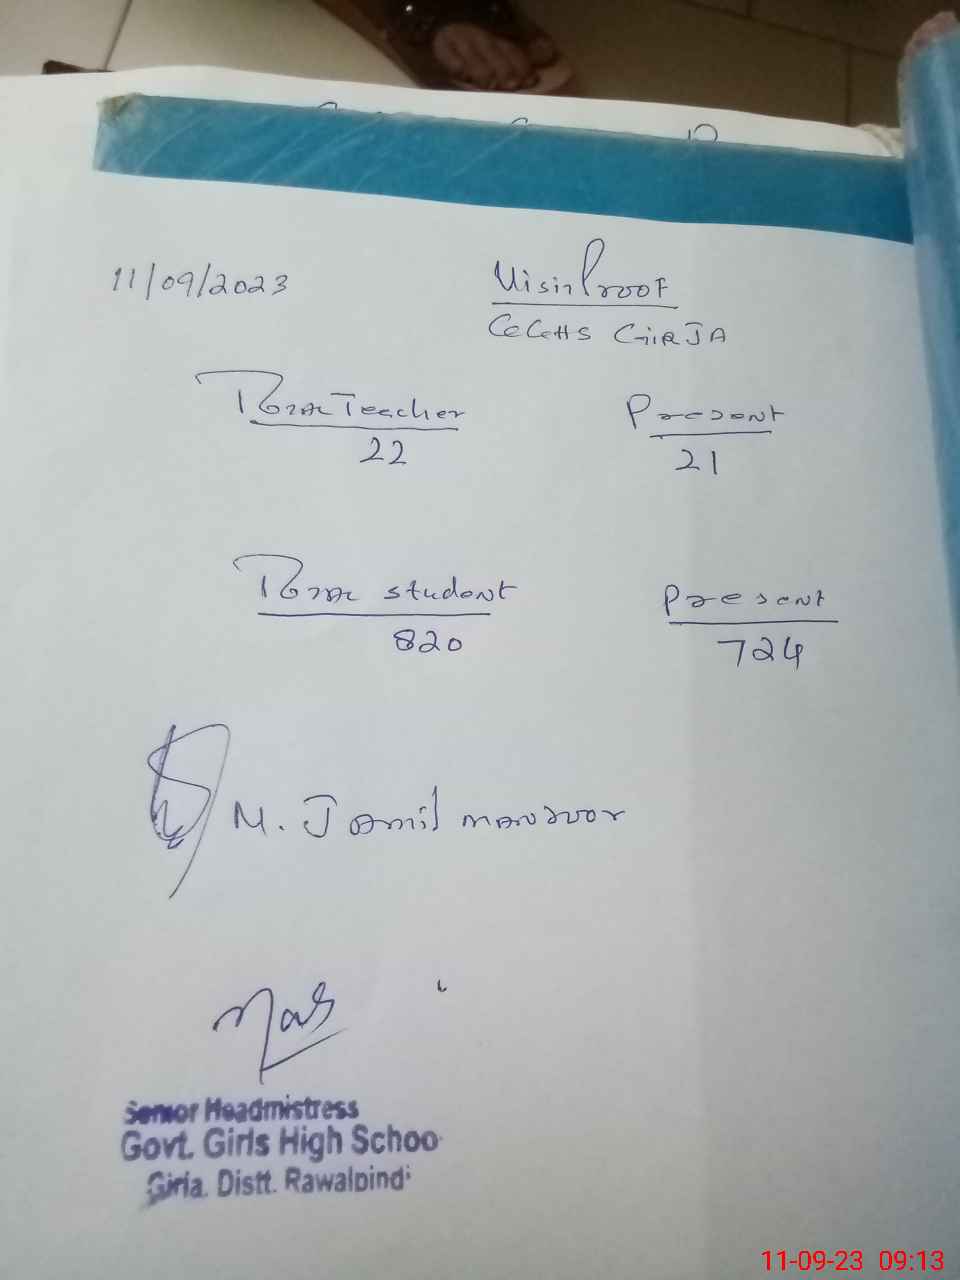 11/09/2023
Visit Proof
GGHS GIRJA
Total Teacher
Present
22
21
Total student
Present
820
724
M. Jamil mansoor
Senior Headmistress
Govt. Girls High Schoo
Girja. Distt. Rawalpindi
11-09-23 09:13